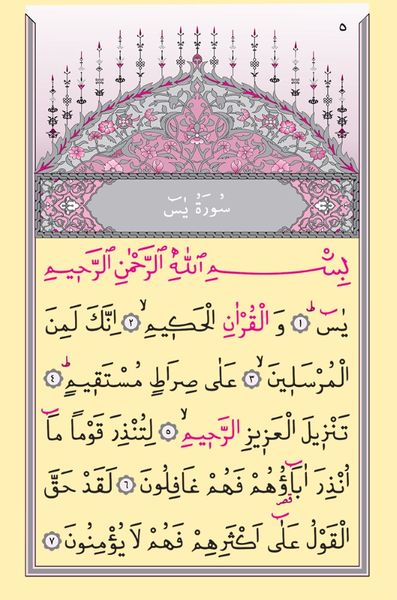 ٥
سُورَةُ يٰسٓ
بِسْـــمِ اللّٰهِ الرَّحْمٰنِ الرَّحٖيمِ
يٰسٓ ۜ ﴿١﴾ وَ الْقُرْاٰنِ الْحَكٖيمِۙ ﴿٢﴾ اِنَّكَ لَمِنَ
الْمُرْسَلٖينَۙ ﴿٣﴾ عَلٰى صِرَاطٍ مُسْتَقٖيمٍۜ ﴿٤﴾
تَنْزٖيلَ الْعَزٖيزِ الرَّحٖيمِۙ ﴿٥﴾ لِتُنْذِرَ قَوْمًا مَٓا
اُنْذِرَ اٰبَٓاؤُ۬هُمْ فَهُمْ غَافِلُونَ ﴿٦﴾ لَقَدْ حَقَّ
الْقَوْلُ عَلٰٓى اَكْثَرِهِمْ فَهُمْ لَا يُؤْمِنُونَ ﴿٧﴾